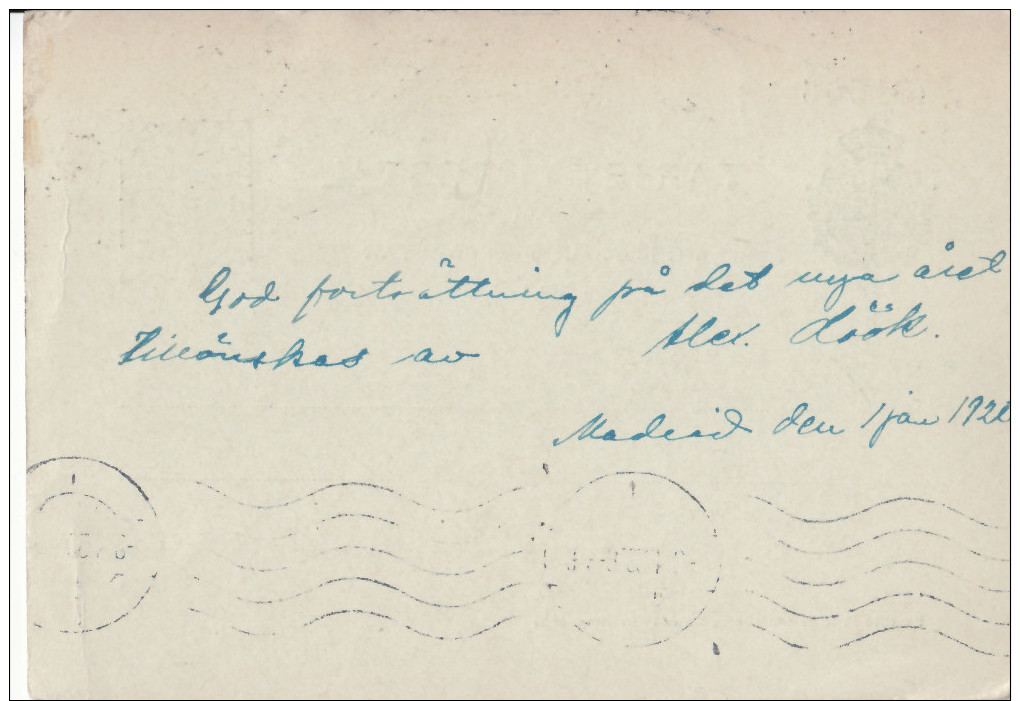 God fortsättning på det nya året
Tillönskas av Alex. Löök.
Madrid den 1 jan